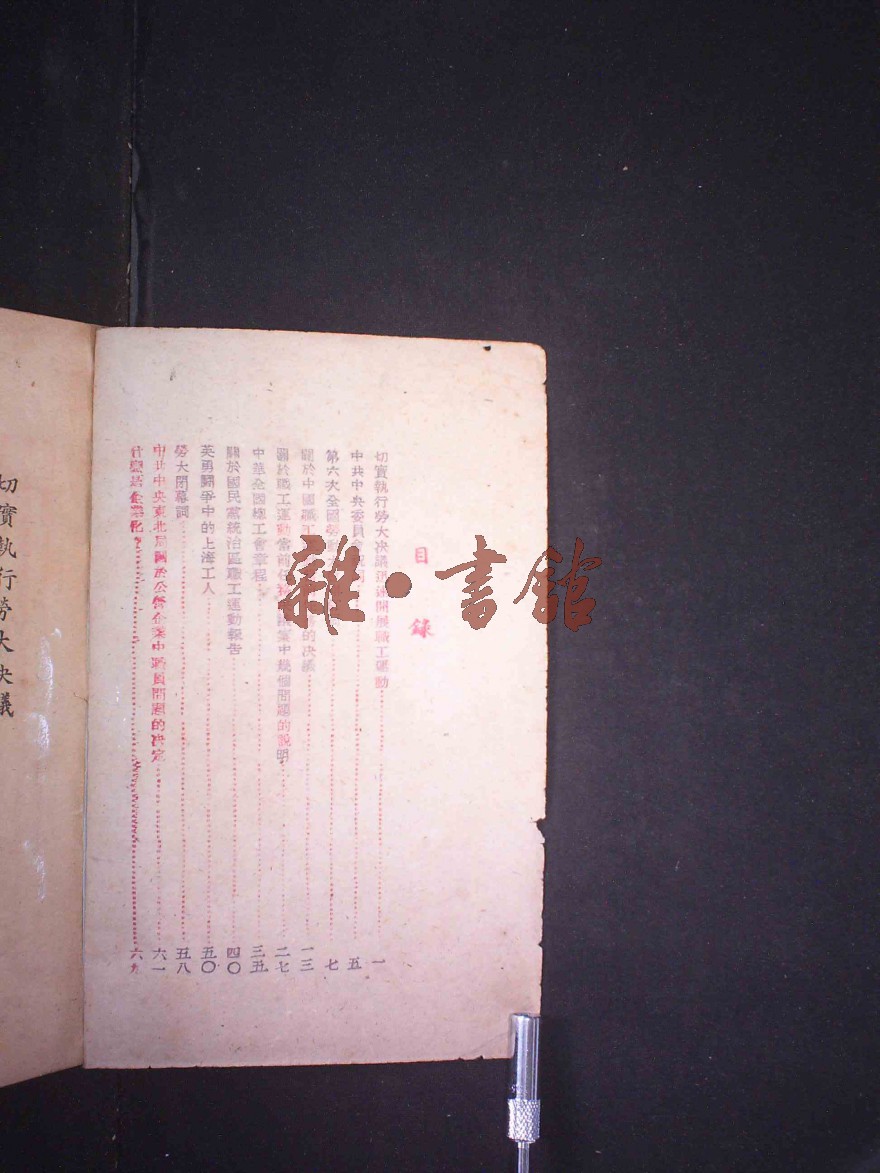 目錄
切實執行勞大決議迅速開展職工運動 一
中共中央委員會 五
第六次全國勞動 七
關於中國職工 的決議 一三
關於職工運動當前任務 決議案中幾個問題的說明 二七
中華全國總工會章程 三五
關於國民黨統治區職工運動報告 四〇
英勇鬪爭中的上海工人 五〇
勞大閉幕詞 五八
中共中央東北局關於公營企業中職員問題的決定 六一
什麼是企業化 六九
切實執行勞大決議
雜·書館